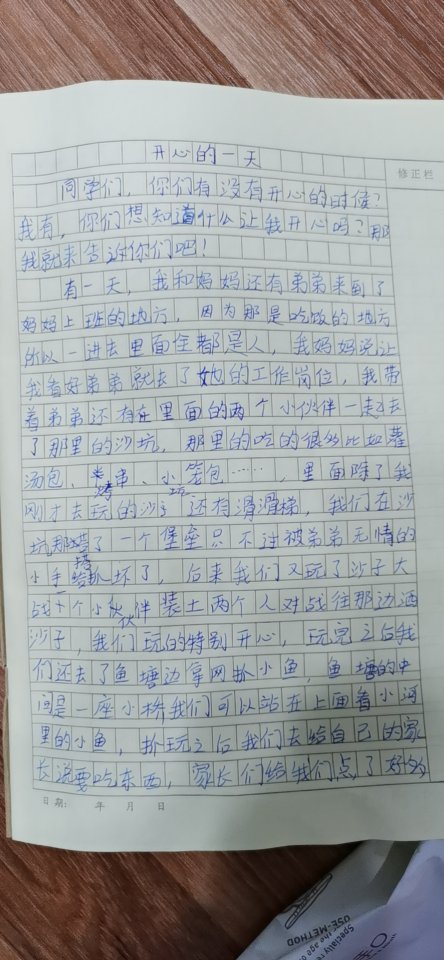 开心的一天
修正栏
同学们，你们有没有开心的时候？
我有，你们想知道什么让我开心吗？那
我就来告诉你们吧！
有一天，我和妈妈还有弟弟来到了
妈妈上班的地方，因为那是吃饭的地方
所以一进去里面全都是人，我妈妈说让
我看好弟弟就去了她的工作岗位，我带
着弟弟还有在里面的两个小伙伴一起去
了那里的沙坑，那里的吃的很多比如灌
汤包、烤串、小笼包……，里面除了我
刚才去玩的沙坑还有滑滑梯，我们在沙
坑那搭了一个堡垒只不过被弟弟无情的
小手给扒坏了，后来我们又玩了沙子大
战个小伙伴装土两个人对战往那边洒
沙子，我们玩的特别开心，玩完之后我
们还去了鱼塘边拿网捞小鱼，鱼塘的中
间是一座小桥我们可以站在上面看小河
里的小鱼，玩之后我们去给自己的家
长说要吃东西，家长们给我们点了好多
日期： 年 月 日
USE-METHOD
Specially
the age o